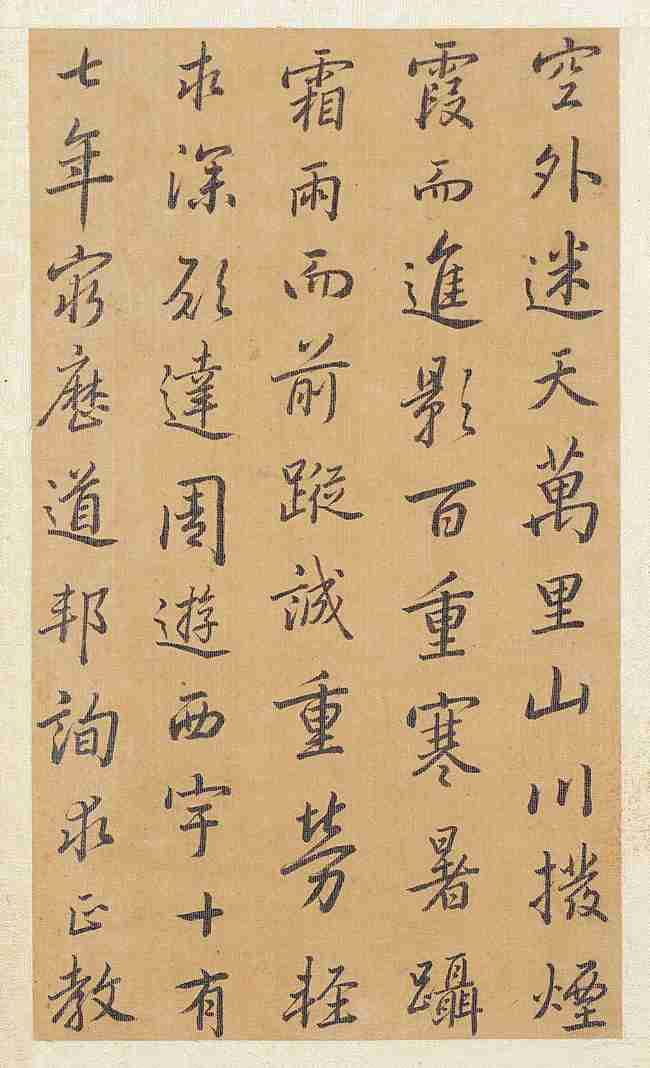 空外迷天萬里山川撥煙
霞而進影百重寒暑躡
霜雨而前蹤誠重勞輕
求深願達周遊西宇十有
七年窮歷道邦詢求正教